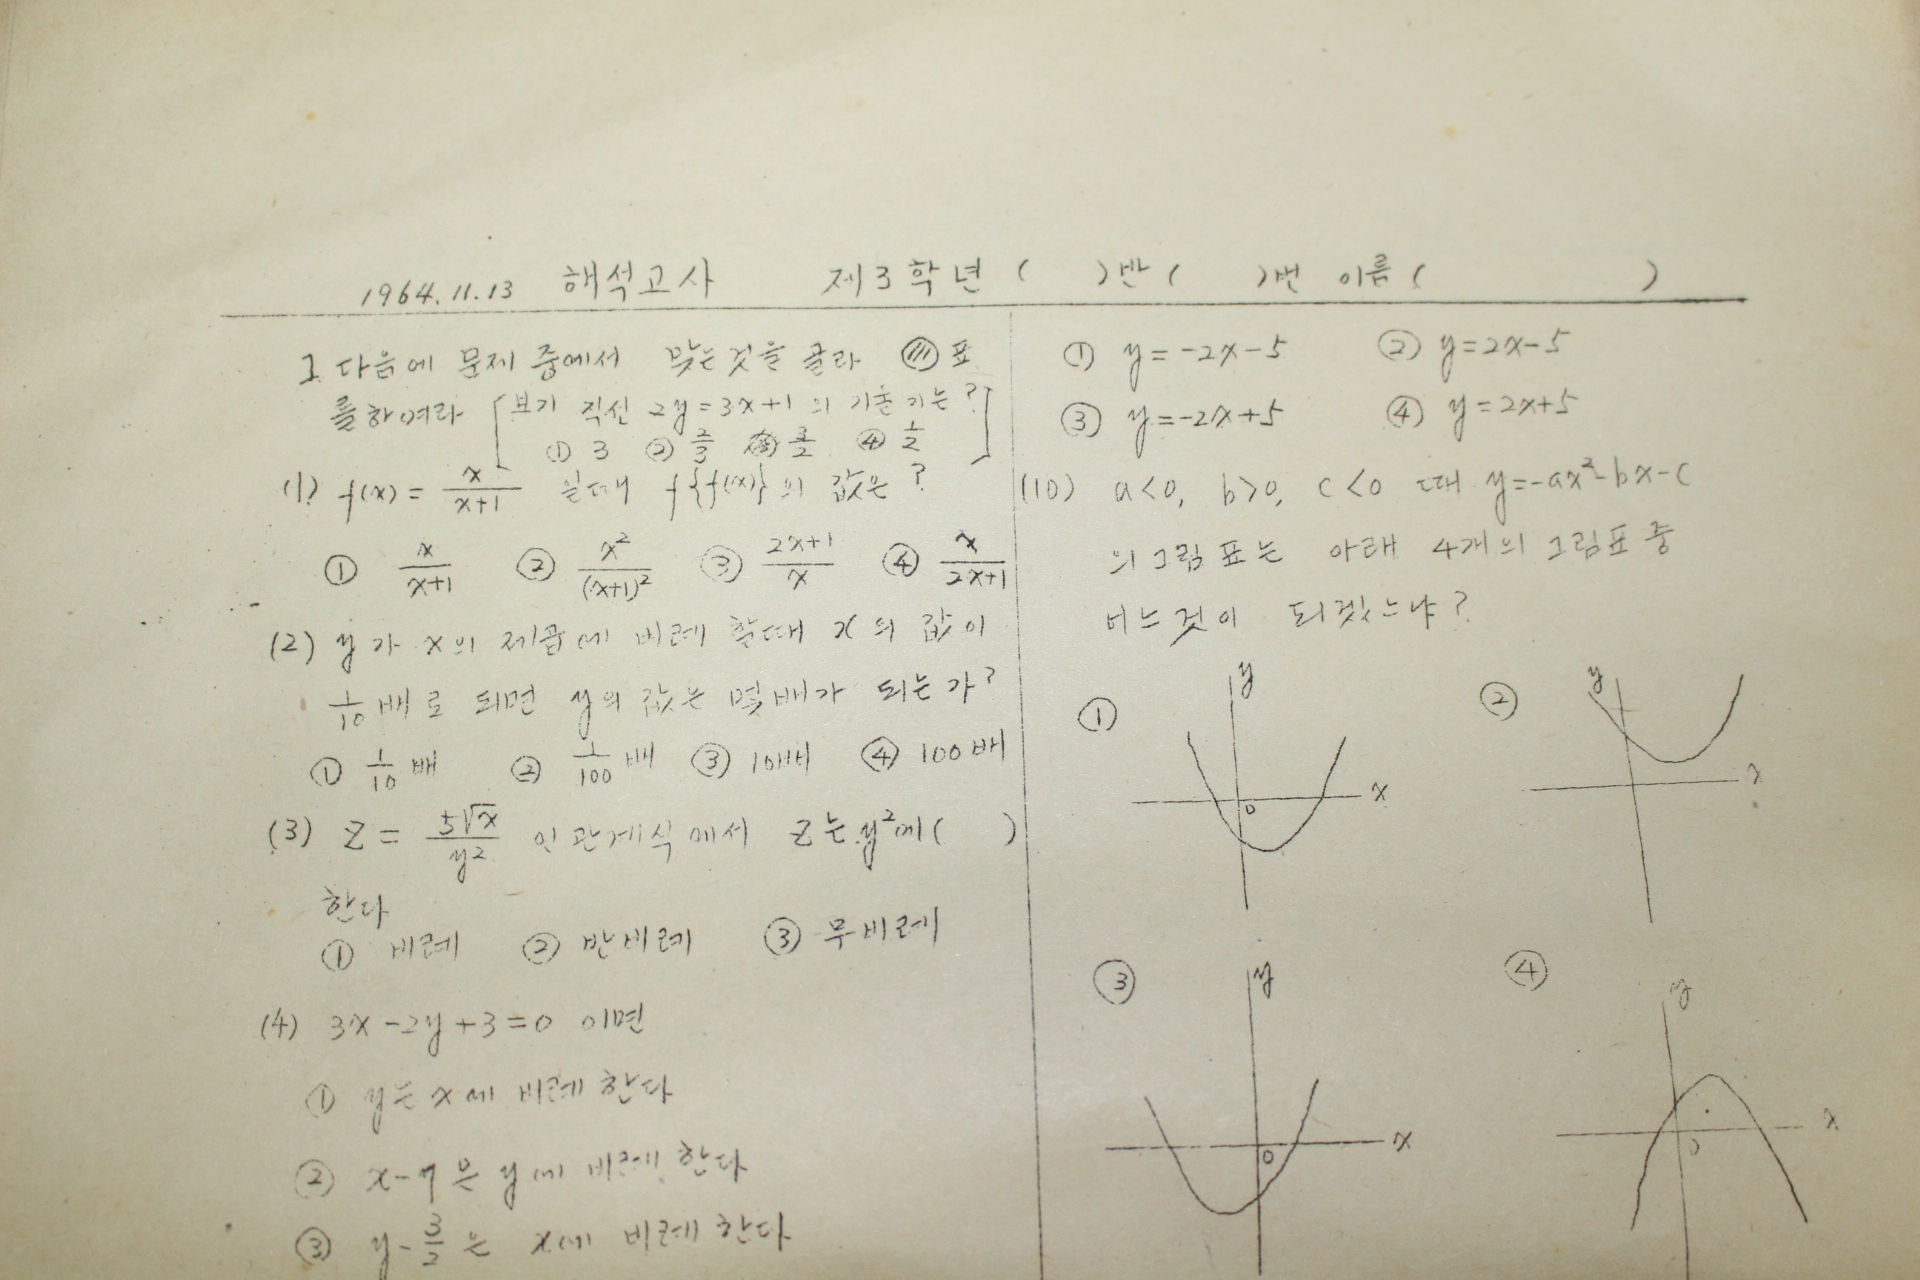 1964.11.13 해석고사 제3학년 ( )반 ( )번 이름 ( )
I. 다음에 문제 중에서 맞는것을 골라 표
를하여라 [보기 직선 2y=3x+1 의 기울기는?
① 3 ② 2/3 ③ 3/2 ④ 1/2]
(1) f(x) = x/(x+1) 일때 f{f(x)}의 값은?
① x/(x+1) ② x²/(x+1)² ③ (2x+1)/x ④ x/(2x+1)
(2) y가 x의 제곱에 비례 할때 x의 값이
1/10배로 되면 y의 값은 몇배가 되는가?
① 1/10배 ② 1/100배 ③ 10배 ④ 100배
(3) Z = 5√x/y² 인 관계식에서 Z는 y²에 ( )
한다
① 비례 ② 반비례 ③ 무비례
(4) 3x-2y+3=0 이면
① y는 x에 비례한다
② x-7은 y에 비례한다
③ y-3/2은 x에 비례한다
① y=-2x-5 ② y=2x-5
③ y=-2x+5 ④ y=2x+5
(10) a<0, b>0, c<0 때 y=-ax²-bx-c
의 그림표는 아래 4개의 그림표 중
어느것이 되겠느냐?
① y x 0
② y x
③ y x 0
④ y x 0